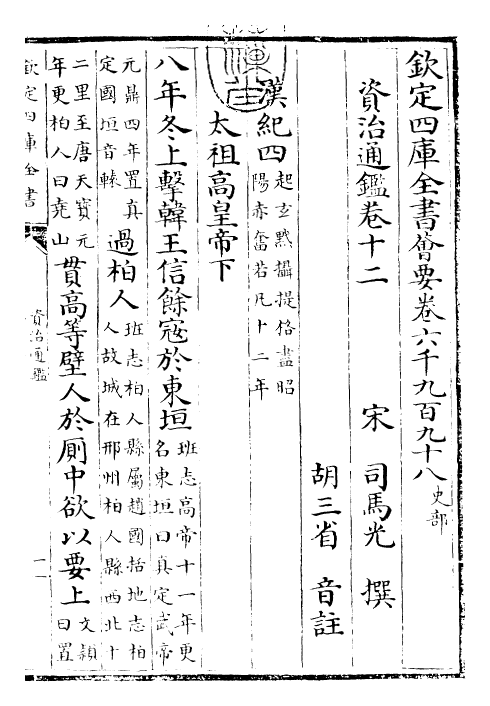 欽定四庫全書薈要卷六千九百九十八史部
資治通鑑卷十二
宋 司馬光 撰
胡三省 音註
漢紀四起玄黓攝提格盡昭
陽赤奮若凡十二年
太祖高皇帝下
八年冬上擊韓王信餘寇於東垣班志高帝十一年更
名東垣曰真定武帝
元鼎四年置真
定國垣音轅過柏人班志柏人縣屬趙國括地志柏
人故城在邢州柏人縣西北十
二里至唐天寶元
年更柏人曰堯山貫高等壁人於厠中欲以要上文穎
曰置
欽定四庫全書
資治通鑑
一